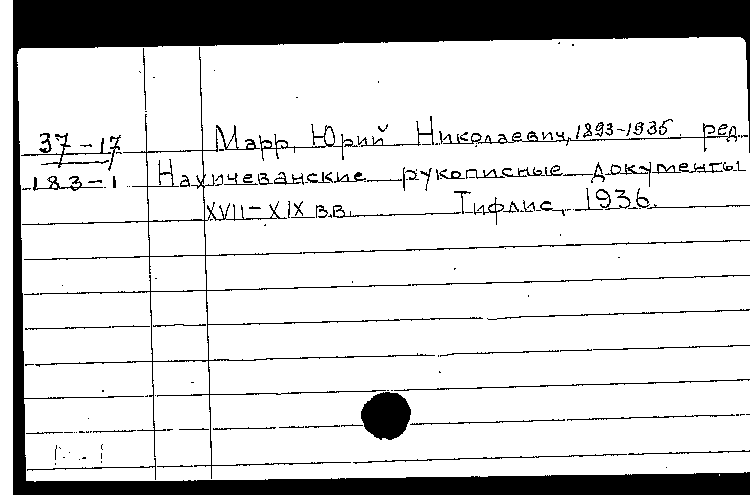 37-17
Марр, Юрий Николаевич, 1893-1935. ред.
183-1
Нахичеванские рукописные документы
XVII-XIX в.в. Тифлис, 1936.